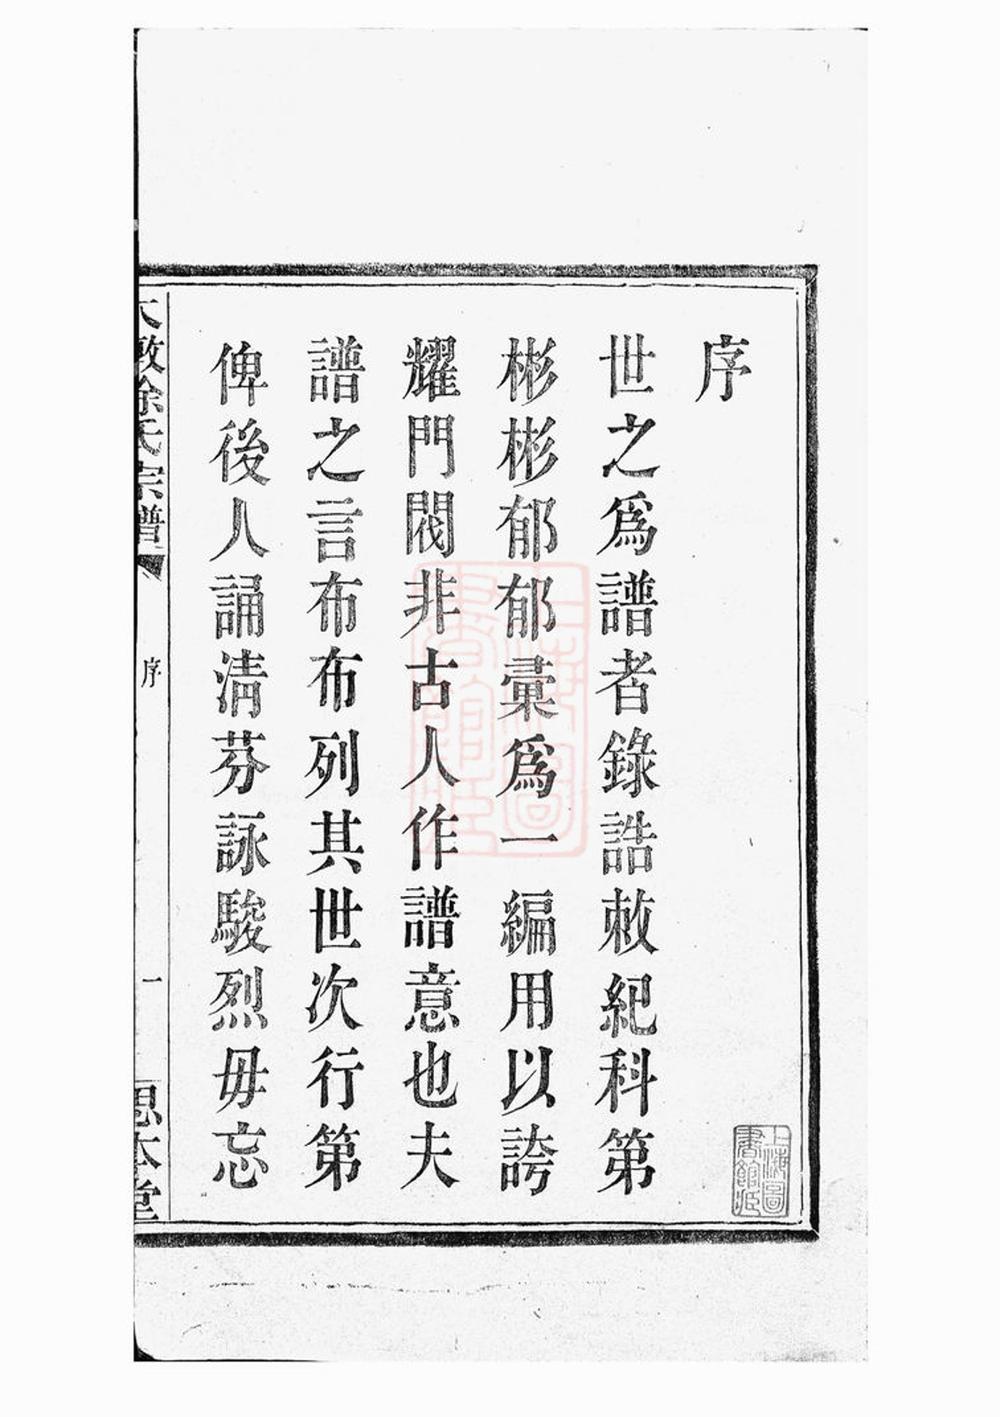 序
世之爲譜者錄誥敕紀科第
彬彬郁郁彙爲一編用以誇
耀門閥非古人作譜意也夫
譜之言布布列其世次行第
俾後人誦淸芬詠駿烈毋忘
大敦徐氏宗譜
序
一
思本堂
上海圖書館藏